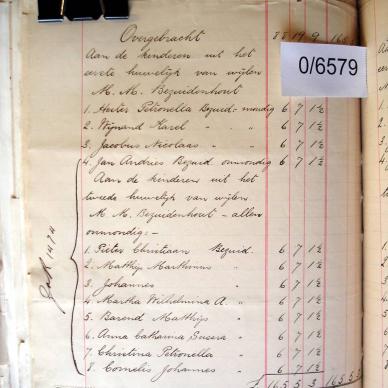 Overgebracht 88 19 9
0/6579
Aan de kinderen uit het
eerste huwelijk van wijlen
M. M. Bezuidenhout
1. Hester Petronella Bezuid:- mondig 6 7 1½
2. Wynand Karel " " 6 7 1½
3. Jacobus Nicolaas " " 6 7 1½
4. Jan Andries Bezuid onmondig 6 7 1½
Aan de kinderen uit het
tweede huwelijk van wijlen
M. M. Bezuidenhout - allen
onmondig:-
1. Pieter Christiaan Bezuid. 6 7 1½
2. Matthys Marthinus " 6 7 1½
3. Johannes " 6 7 1½
4. Martha Wilhelmina A. " 6 7 1½
5. Barend Matthys " 6 7 1½
6. Anna Catharina Susera " 6 7 1½
7. Christina Petronella " 6 7 1½
8. Cornelis Johannes " 6 7 1½
165 5 3